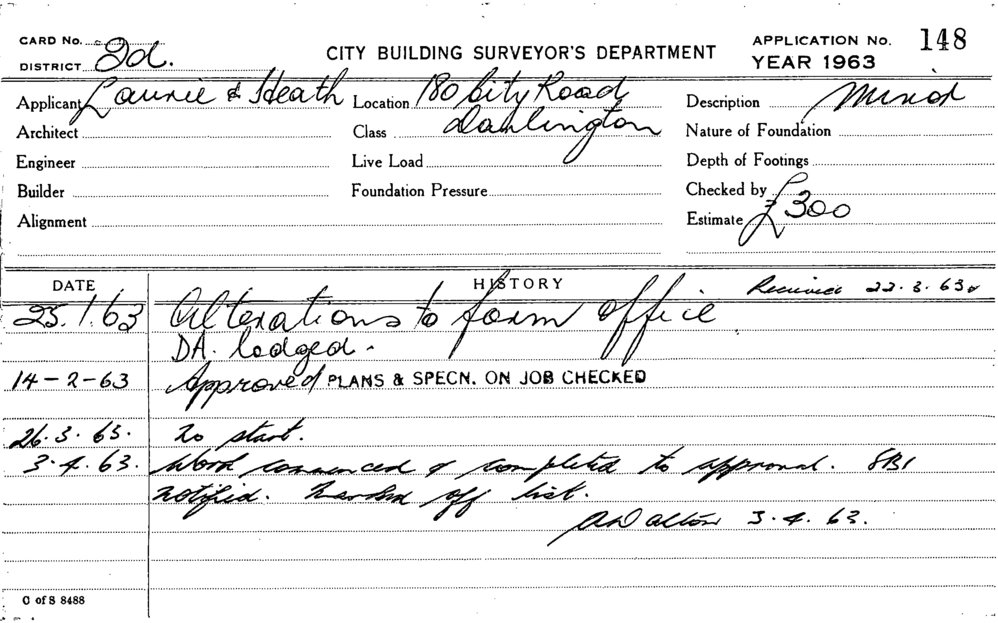 CARD No. 2d. CITY BUILDING SURVEYOR'S DEPARTMENT APPLICATION No. 148
DISTRICT YEAR 1963
Applicant Laurie & Heath Location 180 City Road Description Minor
Architect Class Darlington Nature of Foundation
Engineer Live Load Depth of Footings
Builder Foundation Pressure Checked by
Alignment Estimate £300
DATE HISTORY Received 22.3.63
25.1.63 Alterations to form office
DA. lodged.
14-2-63 Approved PLANS & SPECN. ON JOB CHECKED
26.3.63. To start.
3.4.63. Work commenced & completed to approval. SBI
notified. Marked off list.
3.4.63.
C of S 8488